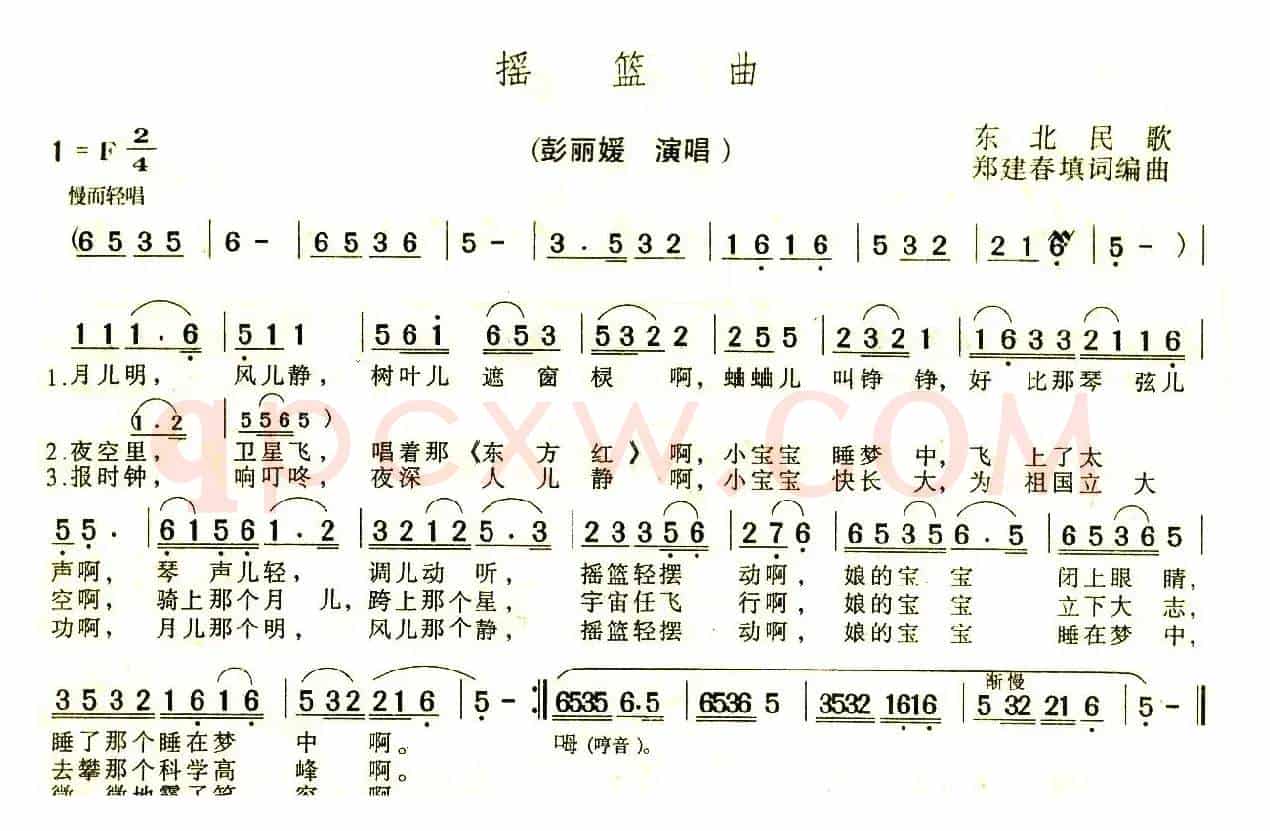 摇 篮 曲
1 = F 2/4
(彭丽媛 演唱)
东 北 民 歌
郑建春填词编曲
慢而轻唱
(6 5 3 5 | 6 - | 6 5 3 6 | 5 - | 3 . 5 3 2 | 1 6 1 6 | 5 3 2 | 2 1 6 | 5 - ) |
1 1 1 . 6 | 5 1 1 | 5 6 i 6 5 3 | 5 3 2 2 | 2 5 5 | 2 3 2 1 | 1 6 3 3 2 1 1 6 |
1.月儿明, 风儿静, 树叶儿 遮 窗 棂 啊, 蛐蛐儿 叫铮 铮, 好 比那琴 弦儿
(1 . 2 5 5 6 5 )
2.夜空里, 卫星飞, 唱着那《东 方 红 》啊, 小宝宝 睡梦 中, 飞 上了太
3.报时钟, 响叮咚, 夜深 人 儿 静 啊, 小宝宝 快长 大, 为 祖国立 大
5 5 . | 6 1 5 6 1 . 2 | 3 2 1 2 5 . 3 | 2 3 3 5 6 | 2 7 6 | 6 5 3 5 6 . 5 | 6 5 3 6 5 |
声啊, 琴 声儿轻, 调儿动 听, 摇篮轻摆 动啊, 娘的宝 宝 闭上眼 睛,
空啊, 骑上那个月 儿, 跨上那个星, 宇宙任飞 行啊, 娘的宝 宝 立下大 志,
功啊, 月儿那个明, 风儿那个静, 摇篮轻摆 动啊, 娘的宝 宝 睡在梦 中,
渐慢
3 5 3 2 1 6 1 6 | 5 3 2 2 1 6 | 5 - :‖ 6535 6.5 | 6536 5 | 3532 1616 | 5 32 21 6 | 5 - ‖
睡了那个睡在梦 中 啊。 呣(哼音)。
去攀那个科学高 峰 啊。
微 微地露了笑 容 啊
qpcxw.COM